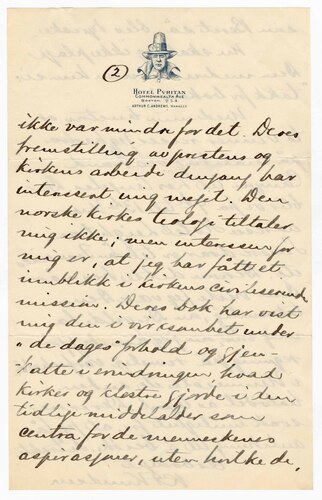 (2)
HOTEL PURITAN
COMMONWEALTH AVE
BOSTON, U.S.A.
ARTHUR C. ANDREWS, MANAGER
ikke var mindre for det. Deres
fremstilling av prestens og
kirkens arbeide dengang har
interessert mig meget. Den
norske kirkes teologi tiltaler
mig ikke; men interessen for
mig er, at jeg har fått et
innblikk i kirkens civiliserende
mission. Deres bok har vist
mig den i virksomhet under
"de dages" forhold og gjen-
kalte i erindringen hvad
kirker og klostre gjorde i den
tidlige middelalder som
centra for de menneskenes
aspirasjoner, uten hvilke de,